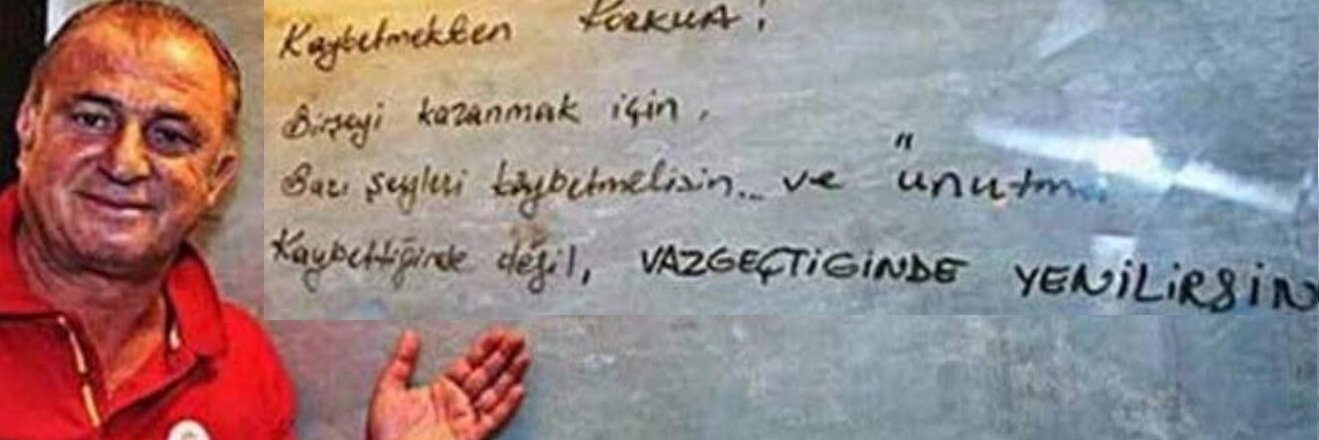 Kaybetmekten KORKMA!
Birşeyi kazanmak için,
Bazı şeyleri kaybetmelisin... ve "unutm
Kaybettiğinde değil, VAZGEÇTİGİNDE YENİLİRSİN